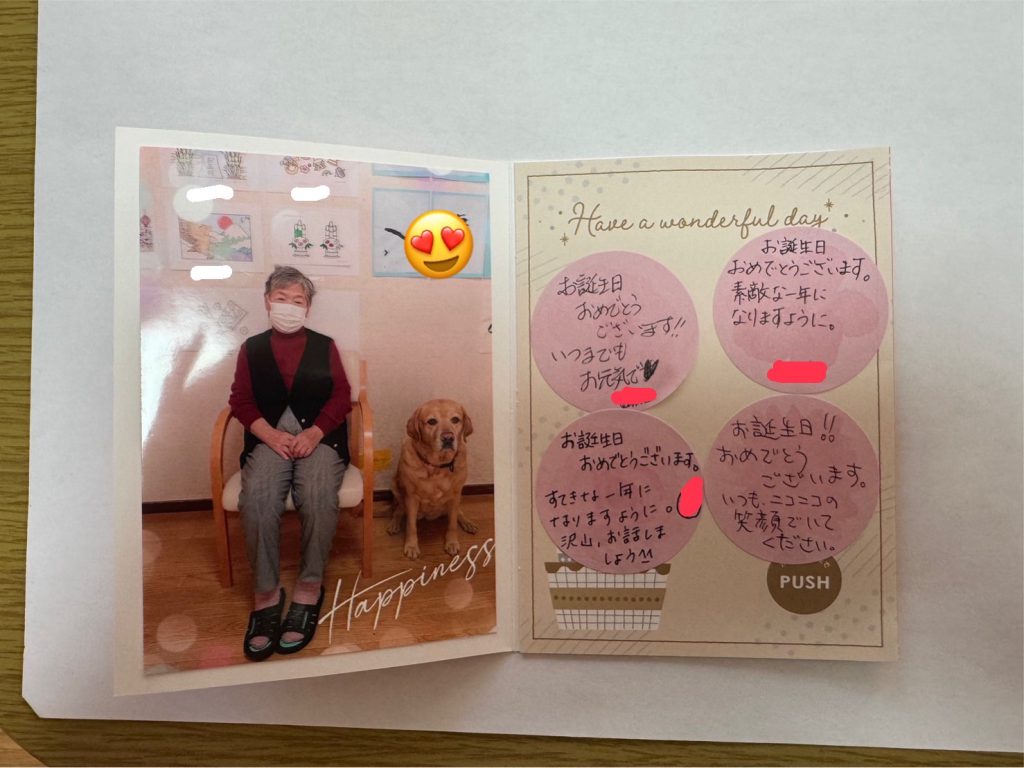 Happiness
Have a wonderful day
お誕生日
おめでとう
ございます!!
いつまでも
お元気で♥
お誕生日
おめでとうございます。
素敵な一年に
なりますように。
お誕生日
おめでとうございます。
すてきな一年に
なりますように。
沢山、お話しま
しょう
お誕生日!!
おめでとう
ございます。
いつも、ニコニコの
笑顔でいて
ください。
PUSH